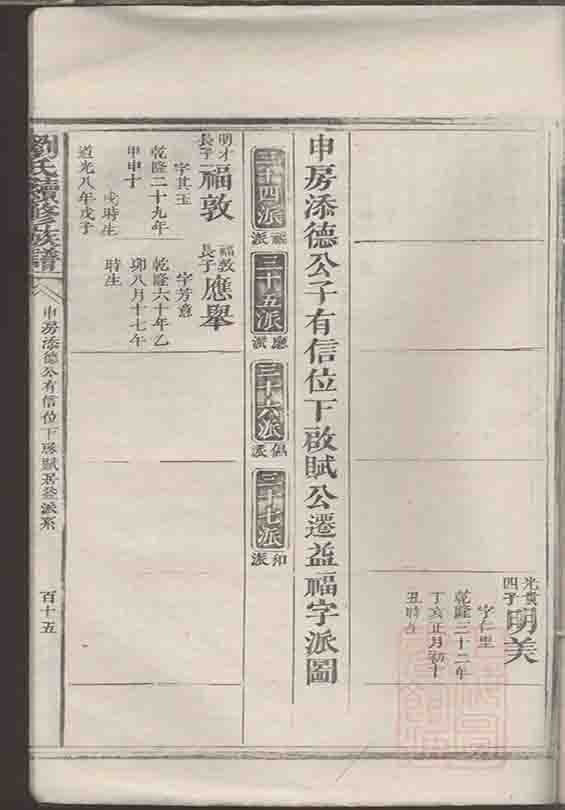 光貴
四子
明美
字仁里
乾隆三十二年
丁亥正月初十
丑時生
申房添德公子有信位下啟賦公遷益福字派圖
三十四派
福派
三十五派
應派
三十六派
派
三十七派
派
明才
長子
福敦
字其玉
乾隆二十九年
甲申十
時生
道光八年戊子
福敦
長子
應舉
字芳意
乾隆六十年乙
卯八月十七午
時生
劉氏續修族譜
申房添德公有信位下啟賦公益派系
百十五